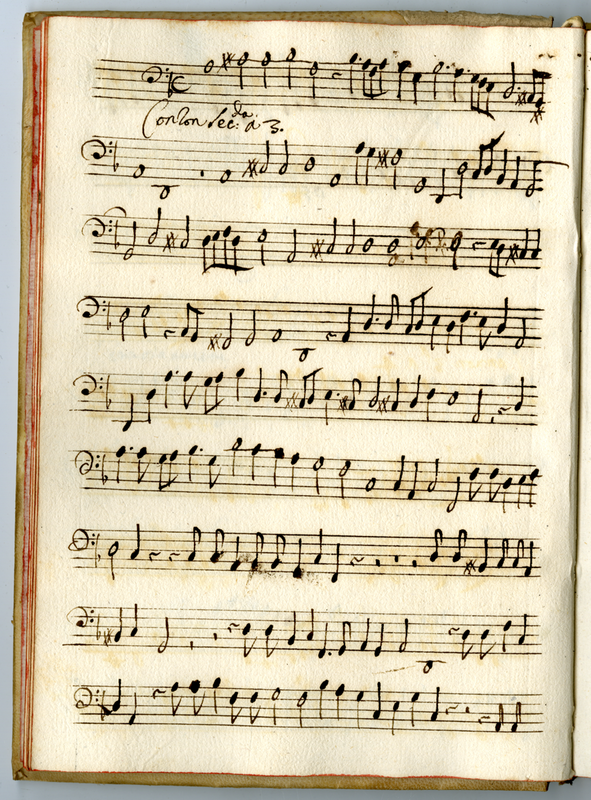 Canzon sec:da a 3.